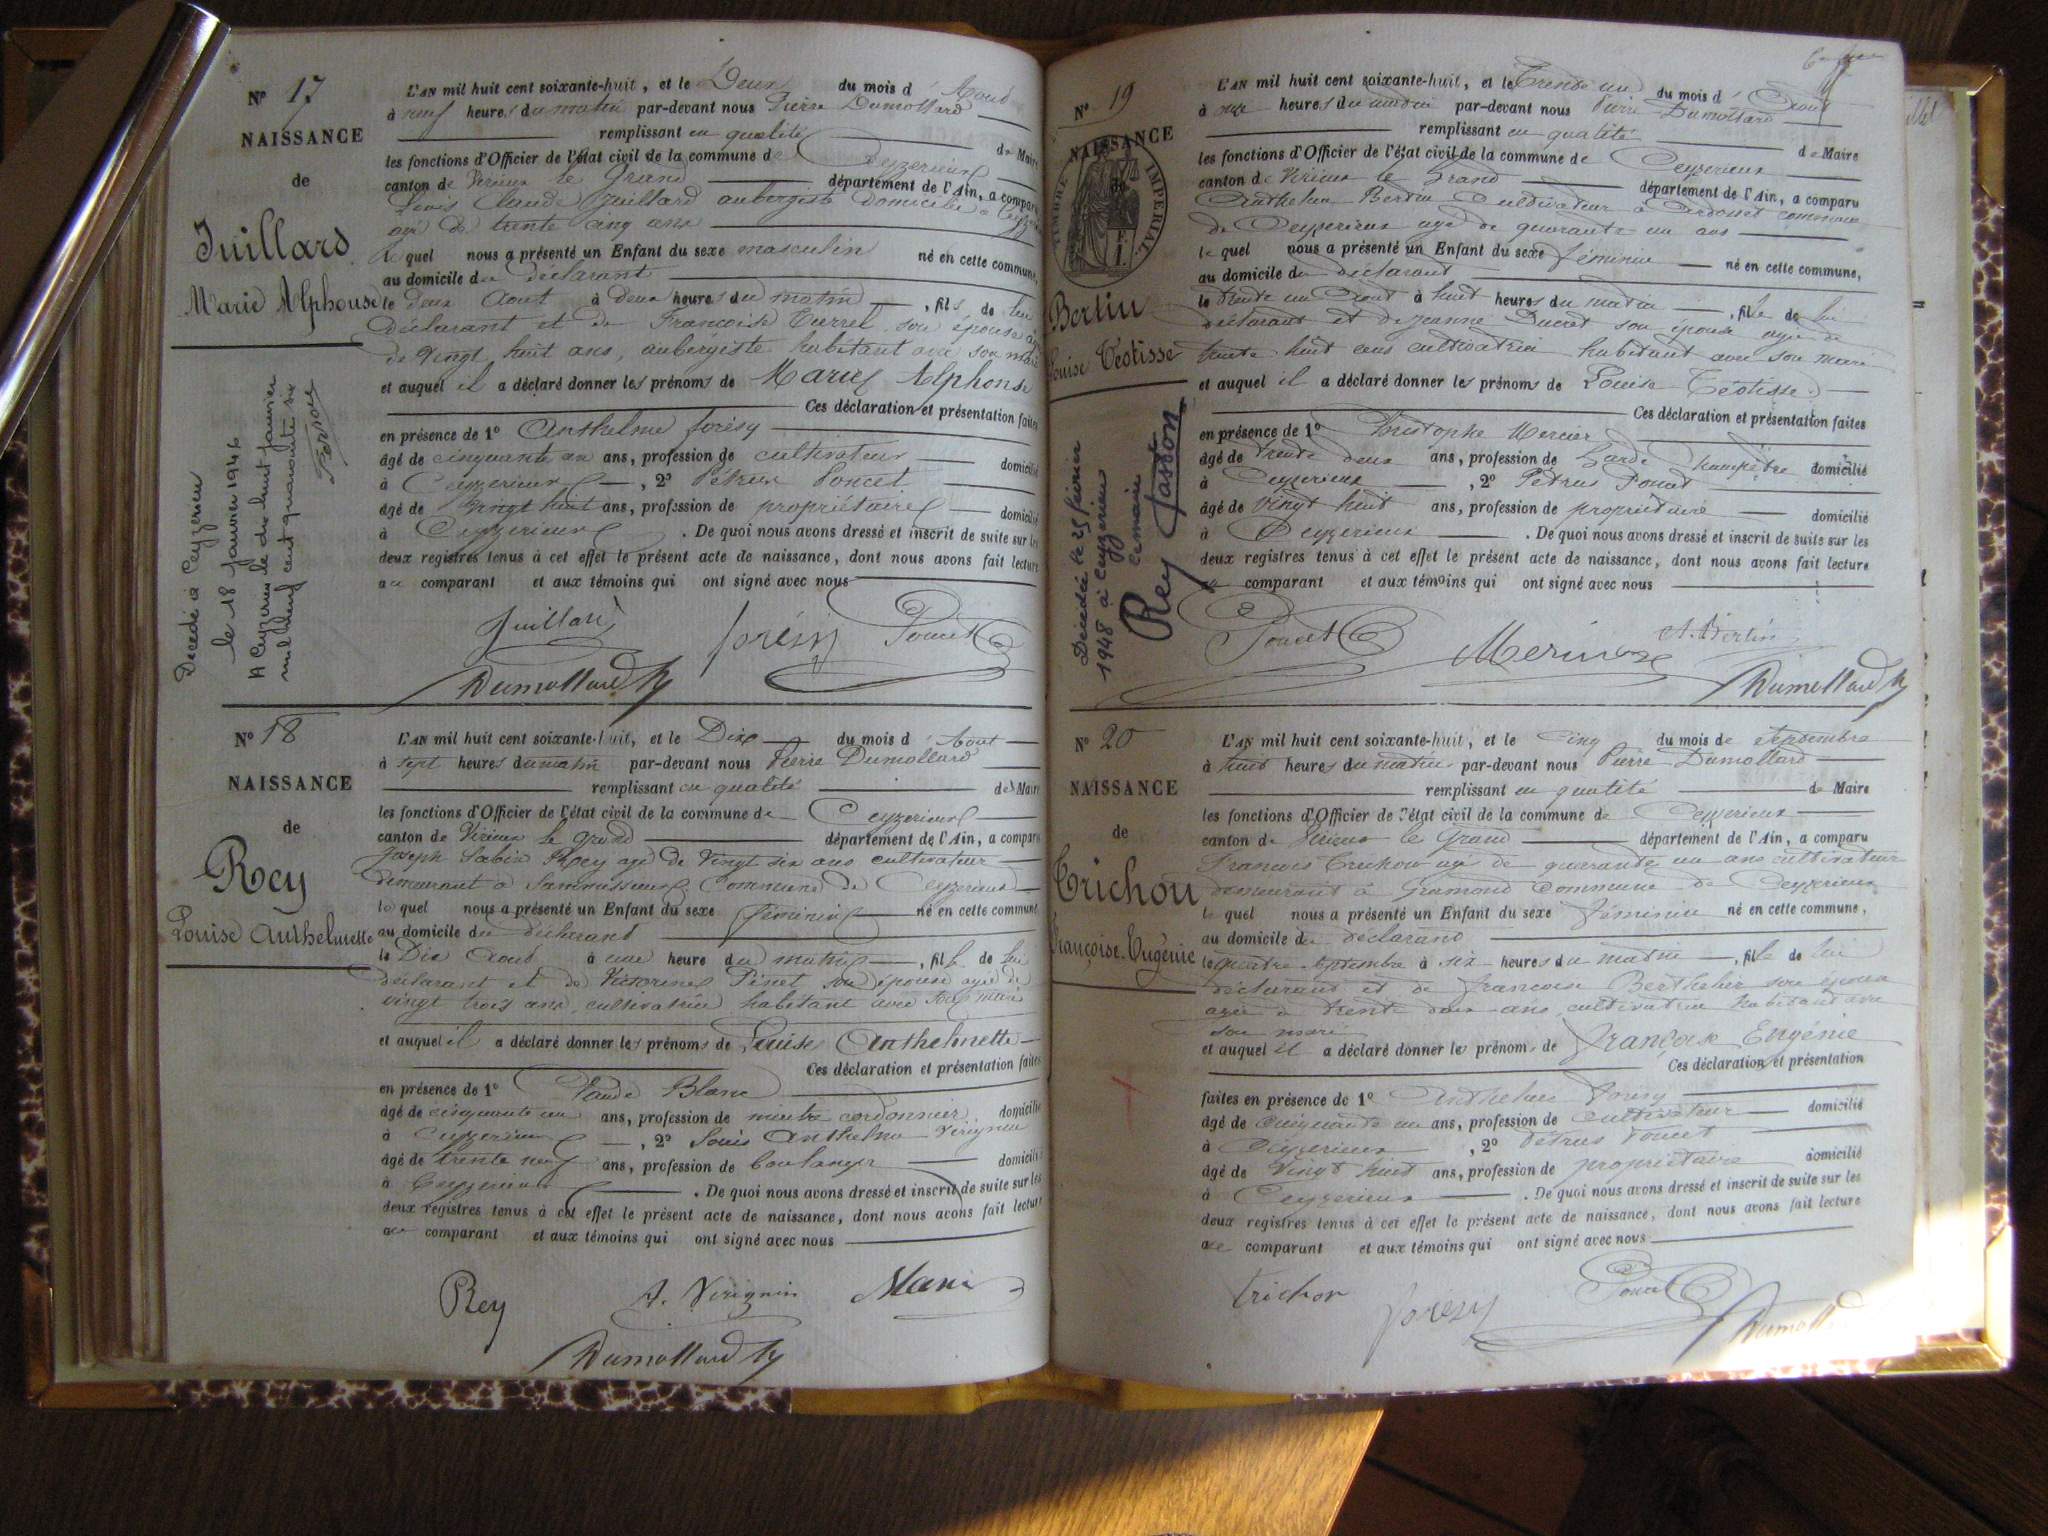 Nº 17
NAISSANCE
de
Juillard
Marie Alphonse
Décédé à Ceyzerieu
le 18 janvier 1946
A Ceyzerieu le dix huit janvier
mil neuf cent quarante six
L'AN mil huit cent soixante-huit, et le Deux du mois d'Aout
à neuf heures du matin par-devant nous Pierre Dumollard
remplissant en qualité de Maire
les fonctions d'Officier de l'état civil de la commune de Ceyzerieux
canton de Virieux le Grand département de l'Ain, a comparu
Louis Claude Juillard aubergiste domicilié à
agé de trente cinq ans
le quel nous a présenté un Enfant du sexe masculin né en cette commune,
au domicile du déclarant
le deux Aout à deux heures du matin, fils de lui
déclarant et de Francoise Currel son épouse
de vingt huit ans, aubergiste habitant avec son mari
et auquel il a déclaré donner les prénoms de Marie Alphonse
Ces déclaration et présentation faites
en présence de 1º Anthelme forésy
âgé de cinquante un ans, profession de cultivateur domicilié
à Ceyzerieux, 2º Pétrus Poncet
âgé de vingt huit ans, profession de propriétaire domicilié
à Ceyzerieux. De quoi nous avons dressé et inscrit de suite sur les
deux registres tenus à cet effet le présent acte de naissance, dont nous avons fait lecture
au comparant et aux témoins qui ont signé avec nous
Juillard forésy Poncet
Dumollard
Nº 18
NAISSANCE
de
Rey
Louise Anthelmette
L'AN mil huit cent soixante-huit, et le Dix du mois d'Aout
à sept heures du matin par-devant nous Pierre Dumollard
remplissant en qualité de Maire
les fonctions d'Officier de l'état civil de la commune de Ceyzerieux
canton de Virieux le Grand département de l'Ain, a comparu
Joseph Sabin Rey agé de vingt six ans cultivateur
demeurant à Commune de Ceyzerieux
le quel nous a présenté un Enfant du sexe féminin né en cette commune
au domicile du déclarant
le Dix Aout à une heure du matin, fille de lui
déclarant et de Victorine Pinet son épouse agée de
vingt trois ans, cultivatrice habitant avec son mari
et auquel il a déclaré donner les prénoms de Louise Anthelmette
Ces déclaration et présentation faites
en présence de 1º Claude Blanc
âgé de cinquante un ans, profession de cordonnier domicilié
à Ceyzerieux, 2º Louis Anthelme Virignin
âgé de trente neuf ans, profession de boulanger domicilié
à Ceyzerieux. De quoi nous avons dressé et inscrit de suite sur les
deux registres tenus à cet effet le présent acte de naissance, dont nous avons fait lecture
au comparant et aux témoins qui ont signé avec nous
Rey A. Virignin
Dumollard
Nº 19
NAISSANCE
de
TIMBRE IMPERIAL
Bertin
Louise Téotisse
Décédée le 25 février
1948 à Ceyzerieu
Le maire
Rey Jasson
L'AN mil huit cent soixante-huit, et le Trente un du mois d'Aout
à heures du matin par-devant nous Pierre Dumollard
remplissant en qualité de Maire
les fonctions d'Officier de l'état civil de la commune de Ceyzerieux
canton de Virieux le Grand département de l'Ain, a comparu
Anthelme Bertin Cultivateur à commune
de Ceyzerieux agé de quarante un ans
le quel nous a présenté un Enfant du sexe féminin né en cette commune,
au domicile du déclarant
le trente un Aout à huit heures du matin, fille de lui
déclarant et de Jeanne Ducret son épouse agée de
trente huit ans cultivatrice habitant avec son mari
et auquel il a déclaré donner les prénoms de Louise Téotisse
Ces déclaration et présentation faites
en présence de 1º Christophe Mercier
âgé de trente deux ans, profession de Garde Champêtre domicilié
à Ceyzerieux, 2º Pétrus Poncet
âgé de vingt huit ans, profession de propriétaire domicilié
à Ceyzerieux. De quoi nous avons dressé et inscrit de suite sur les
deux registres tenus à cet effet le présent acte de naissance, dont nous avons fait lecture
au comparant et aux témoins qui ont signé avec nous
Poncet A. Bertin
Dumollard
Nº 20
NAISSANCE
de
Trichon
Françoise Eugénie
L'AN mil huit cent soixante-huit, et le cinq du mois de septembre
à huit heures du matin par-devant nous Pierre Dumollard
remplissant en qualité de Maire
les fonctions d'Officier de l'état civil de la commune de Ceyzerieux
canton de Virieux le Grand département de l'Ain, a comparu
Francois Trichon agé de quarante un ans cultivateur
demeurant à Gramond Commune de Ceyzerieux
le quel nous a présenté un Enfant du sexe féminin né en cette commune,
au domicile du déclarant
le quatre septembre à six heures du matin, fille de lui
déclarant et de francoise Berthelier son épouse
agée de trente deux ans, cultivatrice habitant avec
son mari
et auquel il a déclaré donner les prénoms de françoise Eugénie
Ces déclaration et présentation
faites en présence de 1º Anthelme forésy
âgé de cinquante un ans, profession de cultivateur domicilié
à Ceyzerieux, 2º Pétrus Poncet
âgé de vingt huit ans, profession de propriétaire domicilié
à Ceyzerieux. De quoi nous avons dressé et inscrit de suite sur les
deux registres tenus à cet effet le présent acte de naissance, dont nous avons fait lecture
au comparant et aux témoins qui ont signé avec nous
trichon forésy Poncet